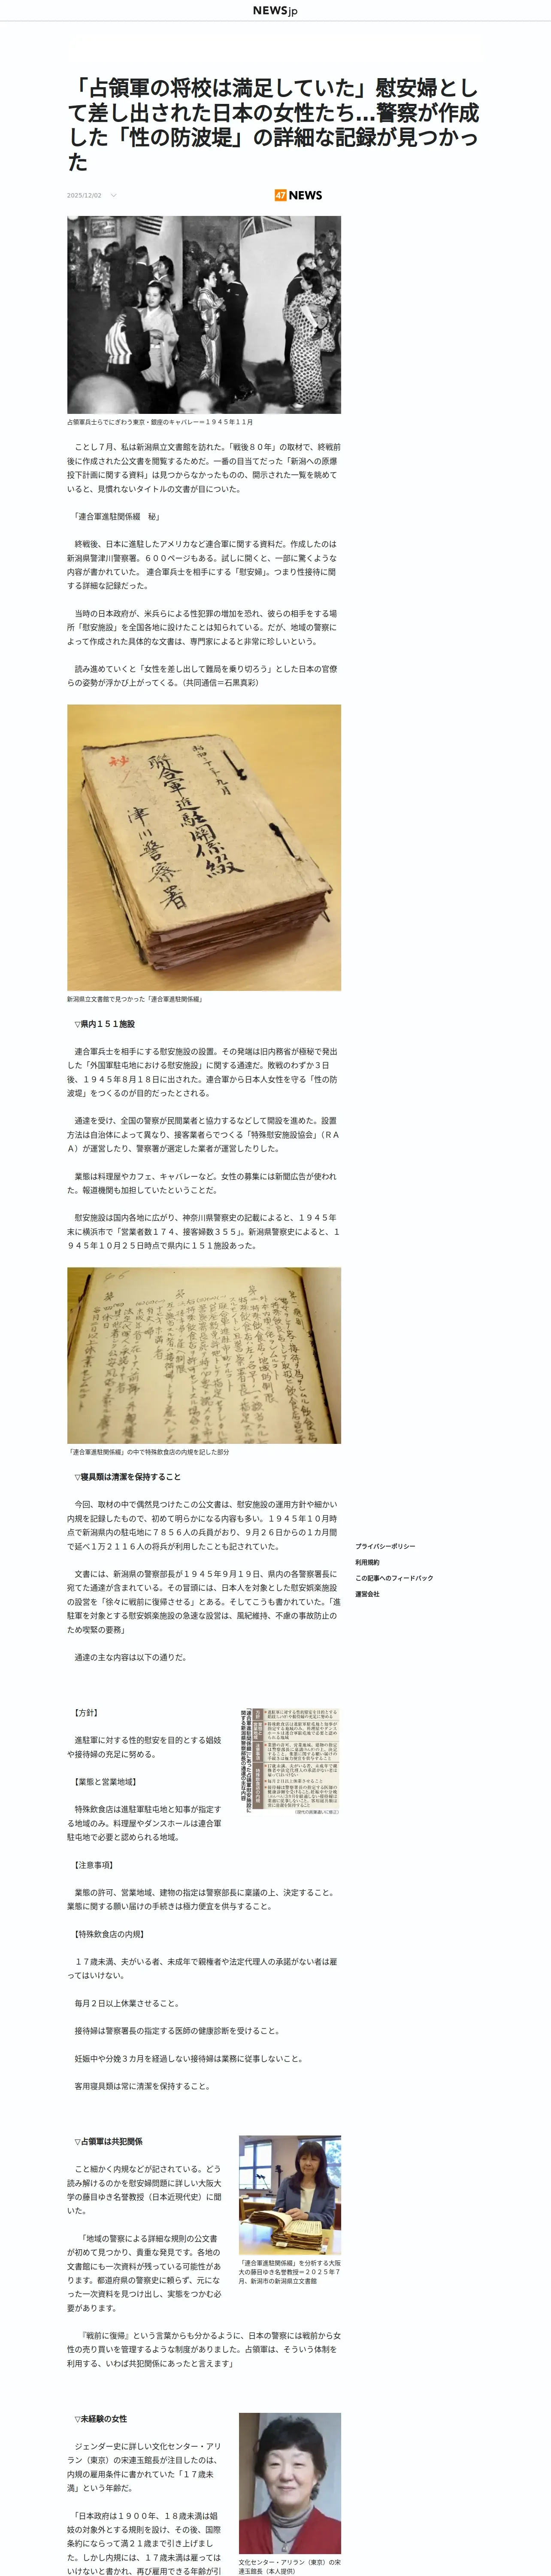 NEWSjp
「占領軍の将校は満足していた」慰安婦とし
て差し出された日本の女性たち…警察が作成
した「性の防波堤」の詳細な記録が見つかっ
た
2025/12/02
47 NEWS
占領軍兵士らでにぎわう東京・銀座のキャバレー＝１９４５年１１月
ことし７月、私は新潟県立文書館を訪れた。「戦後８０年」の取材で、終戦前
後に作成された公文書を閲覧するためだ。一番の目当てだった「新潟への原爆
投下計画に関する資料」は見つからなかったものの、開示された一覧を眺めて
いると、見慣れないタイトルの文書が目についた。
「連合軍進駐関係綴　秘」
終戦後、日本に進駐したアメリカなど連合軍に関する資料だ。作成したのは
新潟県警津川警察署。６００ページもある。試しに開くと、一部に驚くような
内容が書かれていた。 連合軍兵士を相手にする「慰安婦」。つまり性接待に関
する詳細な記録だった。
当時の日本政府が、米兵らによる性犯罪の増加を恐れ、彼らの相手をする場
所「慰安施設」を全国各地に設けたことは知られている。だが、地域の警察に
よって作成された具体的な文書は、専門家によると非常に珍しいという。
読み進めていくと「女性を差し出して難局を乗り切ろう」とした日本の官僚
らの姿勢が浮かび上がってくる。（共同通信＝石黒真彩）
秘
昭和二十年九月
聯合軍進駐関係綴
津川警察署
新潟県立文書館で見つかった「連合軍進駐関係綴」
▽県内１５１施設
連合軍兵士を相手にする慰安施設の設置。その発端は旧内務省が極秘で発出
した「外国軍駐屯地における慰安施設」に関する通達だ。敗戦のわずか３日
後、１９４５年８月１８日に出された。連合軍から日本人女性を守る「性の防
波堤」をつくるのが目的だったとされる。
通達を受け、全国の警察が民間業者と協力するなどして開設を進めた。設置
方法は自治体によって異なり、接客業者らでつくる「特殊慰安施設協会」（ＲＡ
Ａ）が運営したり、警察署が選定した業者が運営したりした。
業態は料理屋やカフェ、キャバレーなど。女性の募集には新聞広告が使われ
た。報道機関も加担していたということだ。
慰安施設は国内各地に広がり、神奈川県警察史の記載によると、１９４５年
末に横浜市で「営業者数１７４、接客婦数３５５」。新潟県警察史によると、１
９４５年１０月２５日時点で県内に１５１施設あった。
「連合軍進駐関係綴」の中で特殊飲食店の内規を記した部分
▽寝具類は清潔を保持すること
今回、取材の中で偶然見つけたこの公文書は、慰安施設の運用方針や細かい
内規を記録したもので、初めて明らかになる内容も多い。１９４５年１０月時
点で新潟県内の駐屯地に７８５６人の兵員がおり、９月２６日からの１カ月間
で延べ１万２１１６人の将兵が利用したことも記されていた。
文書には、新潟県の警察部長が１９４５年９月１９日、県内の各警察署長に
宛てた通達が含まれている。その冒頭には、日本人を対象とした慰安娯楽施設
の設営を「徐々に戦前に復帰させる」とある。そしてこうも書かれていた。「進
駐軍を対象とする慰安娯楽施設の急速な設営は、風紀維持、不慮の事故防止の
ため喫緊の要務」
通達の主な内容は以下の通りだ。
【方針】
進駐軍に対する性的慰安を目的とする娼妓
や接待婦の充足に努める。
【業態と営業地域】
特殊飲食店は進駐軍駐屯地と知事が指定す
る地域のみ。料理屋やダンスホールは連合軍
駐屯地で必要と認められる地域。
【注意事項】
業態の許可、営業地域、建物の指定は警察部長に稟議の上、決定すること。
業態に関する願い届けの手続きは極力便宜を供与すること。
【特殊飲食店の内規】
１７歳未満、夫がいる者、未成年で親権者や法定代理人の承諾がない者は雇
ってはいけない。
毎月２日以上休業させること。
接待婦は警察署長の指定する医師の健康診断を受けること。
妊娠中や分娩３カ月を経過しない接待婦は業務に従事しないこと。
客用寝具類は常に清潔を保持すること。
▽占領軍は共犯関係
こと細かく内規などが記されている。どう
読み解けるのかを慰安婦問題に詳しい大阪大
学の藤目ゆき名誉教授（日本近現代史）に聞
いた。
「地域の警察による詳細な規則の公文書
が初めて見つかり、貴重な発見です。各地の
文書館にも一次資料が残っている可能性があ
ります。都道府県の警察史に頼らず、元にな
った一次資料を見つけ出し、実態をつかむ必
要があります。
『戦前に復帰』という言葉からも分かるように、日本の警察には戦前から女
性の売り買いを管理するような制度がありました。占領軍は、そういう体制を
利用する、いわば共犯関係にあったと言えます」
「連合軍進駐関係綴」を分析する大阪
大の藤目ゆき名誉教授＝２０２５年７
月、新潟市の新潟県立文書館
▽未経験の女性
ジェンダー史に詳しい文化センター・アリ
ラン（東京）の宋連玉館長が注目したのは、
内規の雇用条件に書かれていた「１７歳未
満」という年齢だ。
「日本政府は１９００年、１８歳未満は娼
妓の対象外とする規則を設け、その後、国際
条約にならって満２１歳まで引き上げまし
た。しかし内規には、１７歳未満は雇っては
いけないと書かれ、再び雇用できる年齢が引
文化センター・アリラン（東京）の宋
連玉館長（本人提供）
プライバシーポリシー
利用規約
この記事へのフィードバック
運営会社